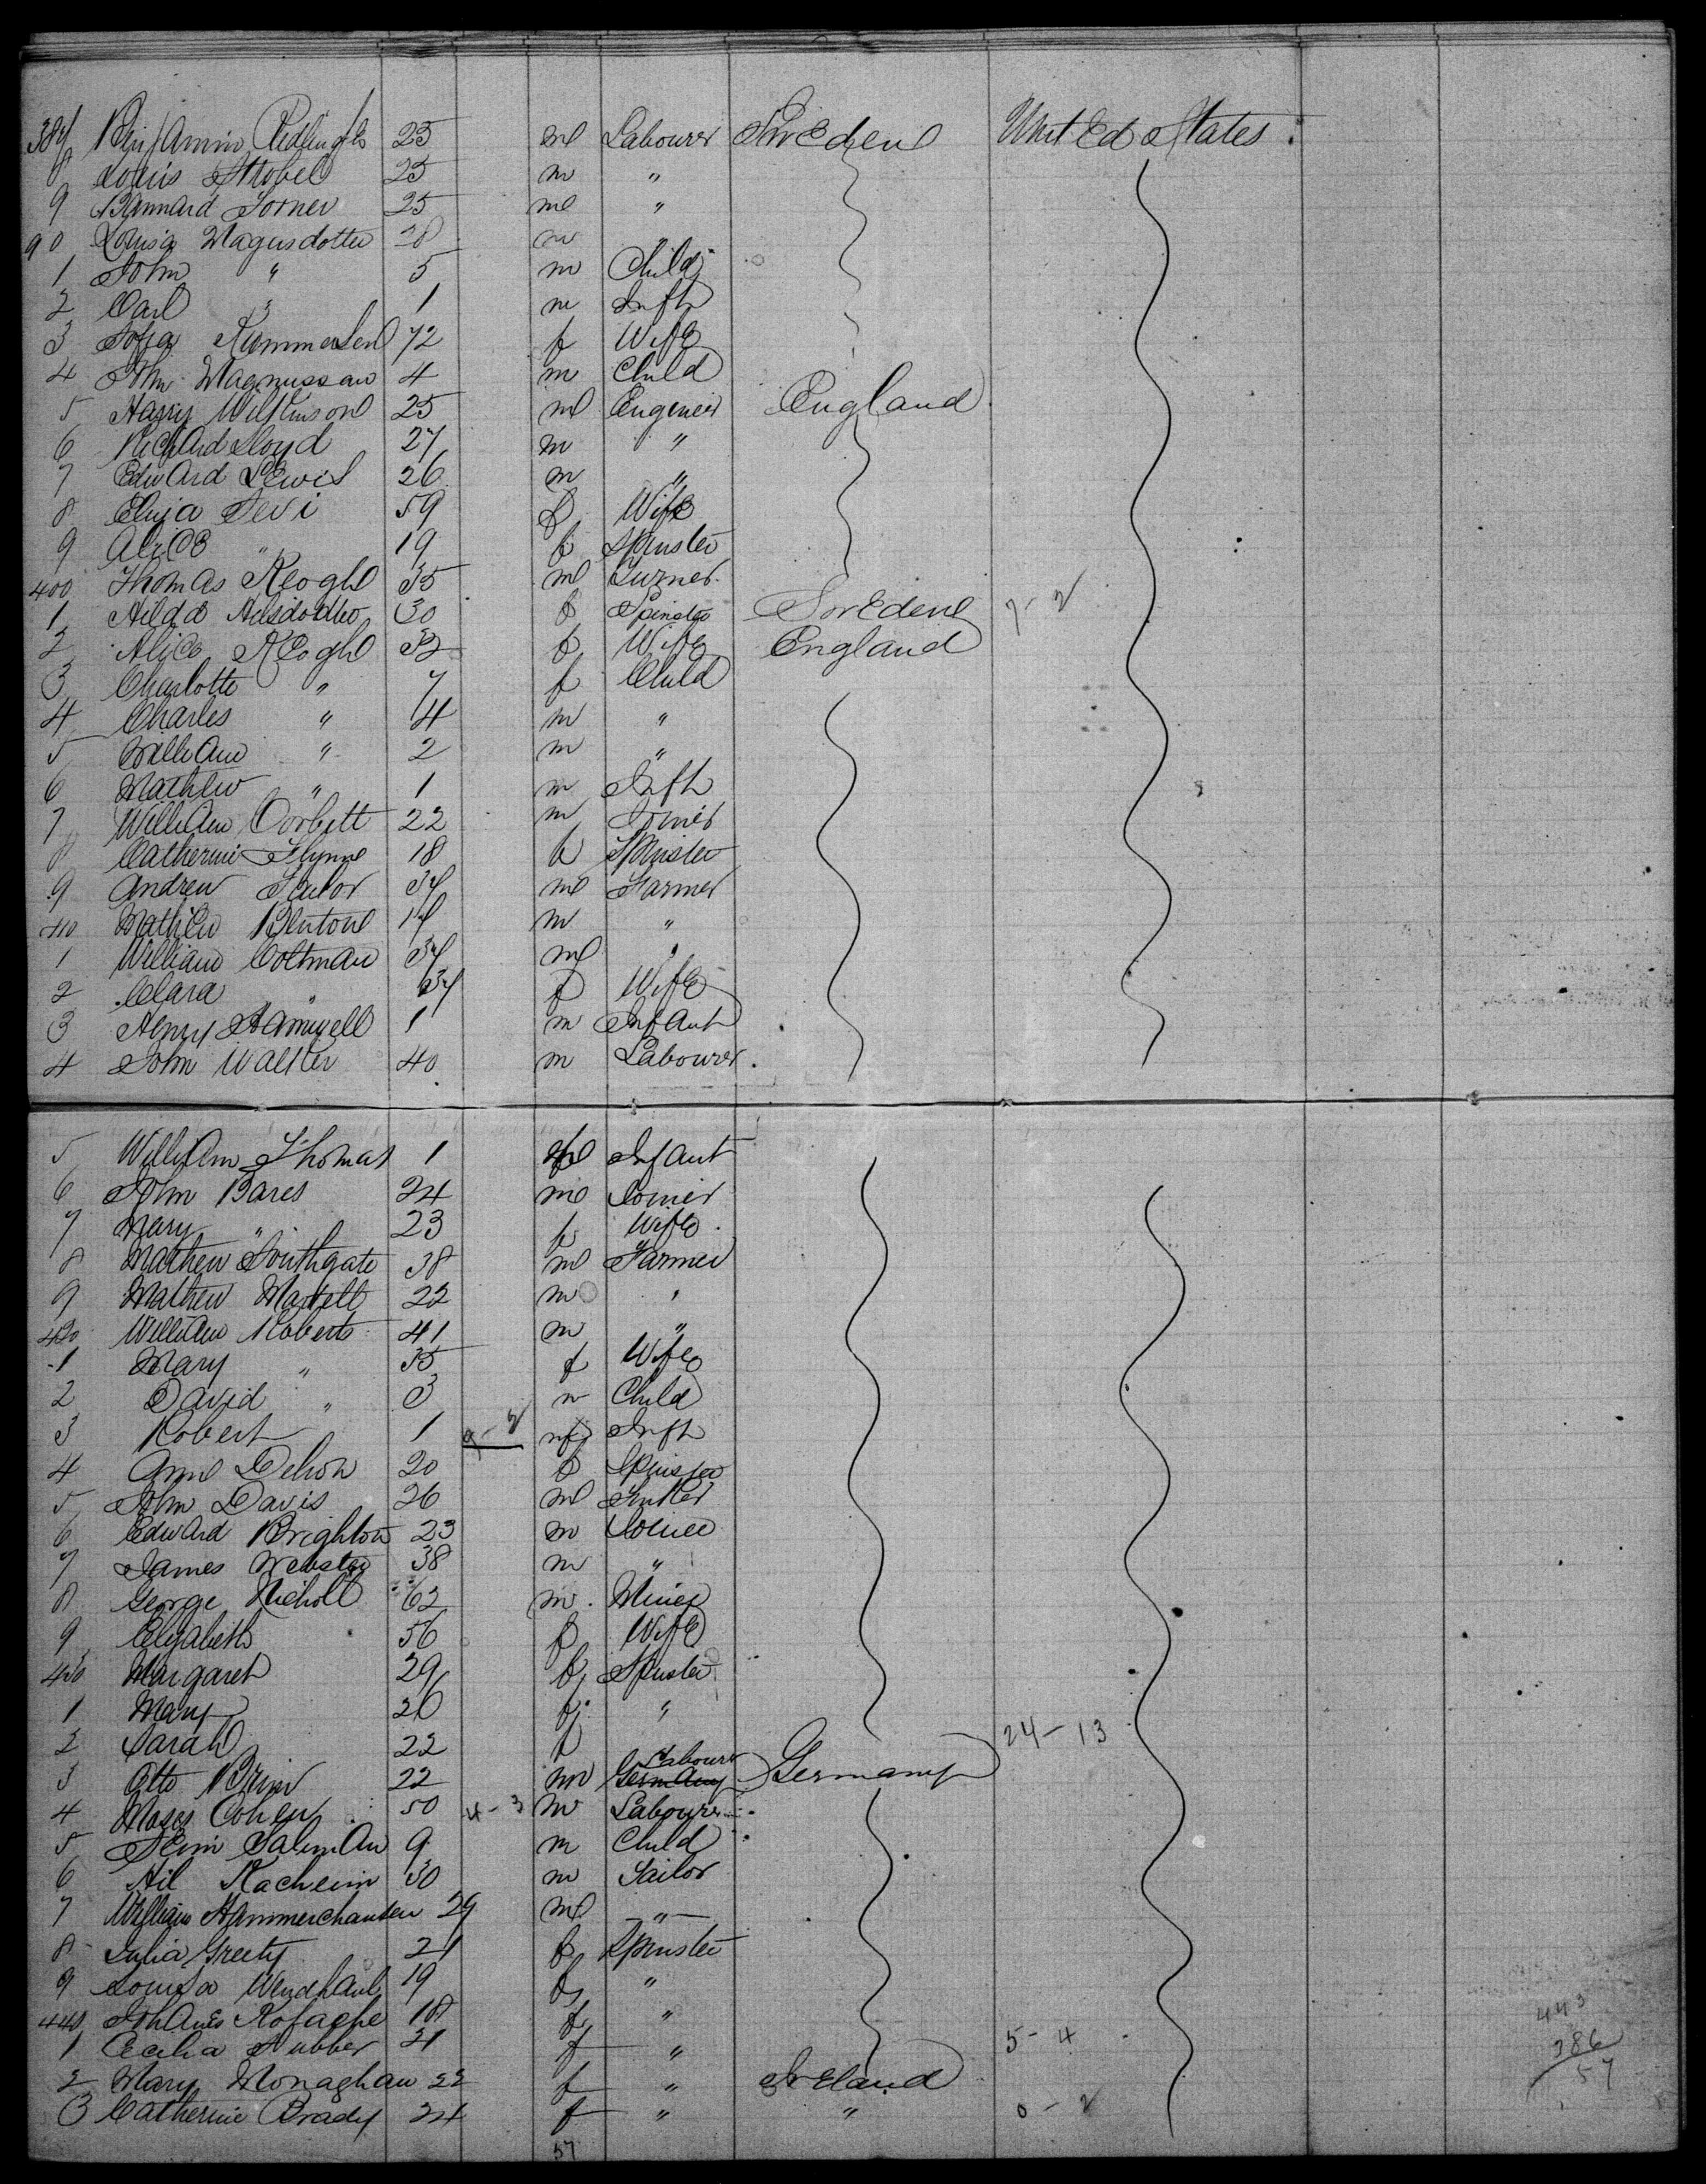 387 Benjamin 25 m Labourer Sweden United States
8 Louis Strobel 25 m "
9 Bannard 25 m "
90 Louisa Magusdotter 28 m "
1 John " 5 m Child
2 Carl " 1 m Inft
3 Sofia 72 f Wife
4 John Magnussan 4 m Child
5 Harry Wilkinson 25 m Engineer England
6 Richard Lloyd 27 m "
7 Edward Lewis 26 m "
8 Eliza Levi 59 f Wife
9 Alice " 19 f Spinster
400 Thomas Keogh 35 m Turner
1 Hilda 30 f Spinster Sweden 7-2
2 Alice Keogh 32 f Wife England
3 Charlotte " 7 f Child
4 Charles " 4 m "
5 William " 2 m "
6 Mathew " 1 m Inft
7 William Corbett 22 m Joiner
8 Catherine Flynn 18 f Spinster
9 Andrew 34 m Farmer
410 Mathew Blutone m "
1 William Coltman 34 m "
2 Clara " 34 f Wife
3 Henry Hamwell 1 m Infant
4 John Walker 40 m Labourer
5 William Thomas 1 m Infant
6 John Bares 24 m Joiner
7 Mary " 23 f Wife
8 Mathew Southgate 38 m Farmer
9 Mathew 22 m "
420 William Roberts 41 m "
1 Mary " 35 f Wife
2 David " 3 m Child
3 Robert 1 9-2 m Inft
4 Anne 20 f Spinster
5 John Davis 26 m
6 Edward Brighton 23 m Joiner
7 James Webster 38 m "
8 George Nicholl 62 m Miner
9 Elizabeth 56 f Wife
430 Margaret 29 f Spinster
1 Mary 26 f "
2 Sarah 22 f 24-13
3 Otto 22 m Germany Labourer Germany
4 Moses Cohen 50 4-3 m Labourer
5 9 m Child
6 Kacheim 30 m Tailor
7 William Hammerchausen 29 m "
8 Julia Greety 21 f Spinster
9 Louisa 19 f "
440 18 f "
1 Cecilia Hubber 21 f " 5-4
2 Mary Monaghan 22 f " Ireland
3 Catherine Brady 24 f " " 0-2
57
443
386
57